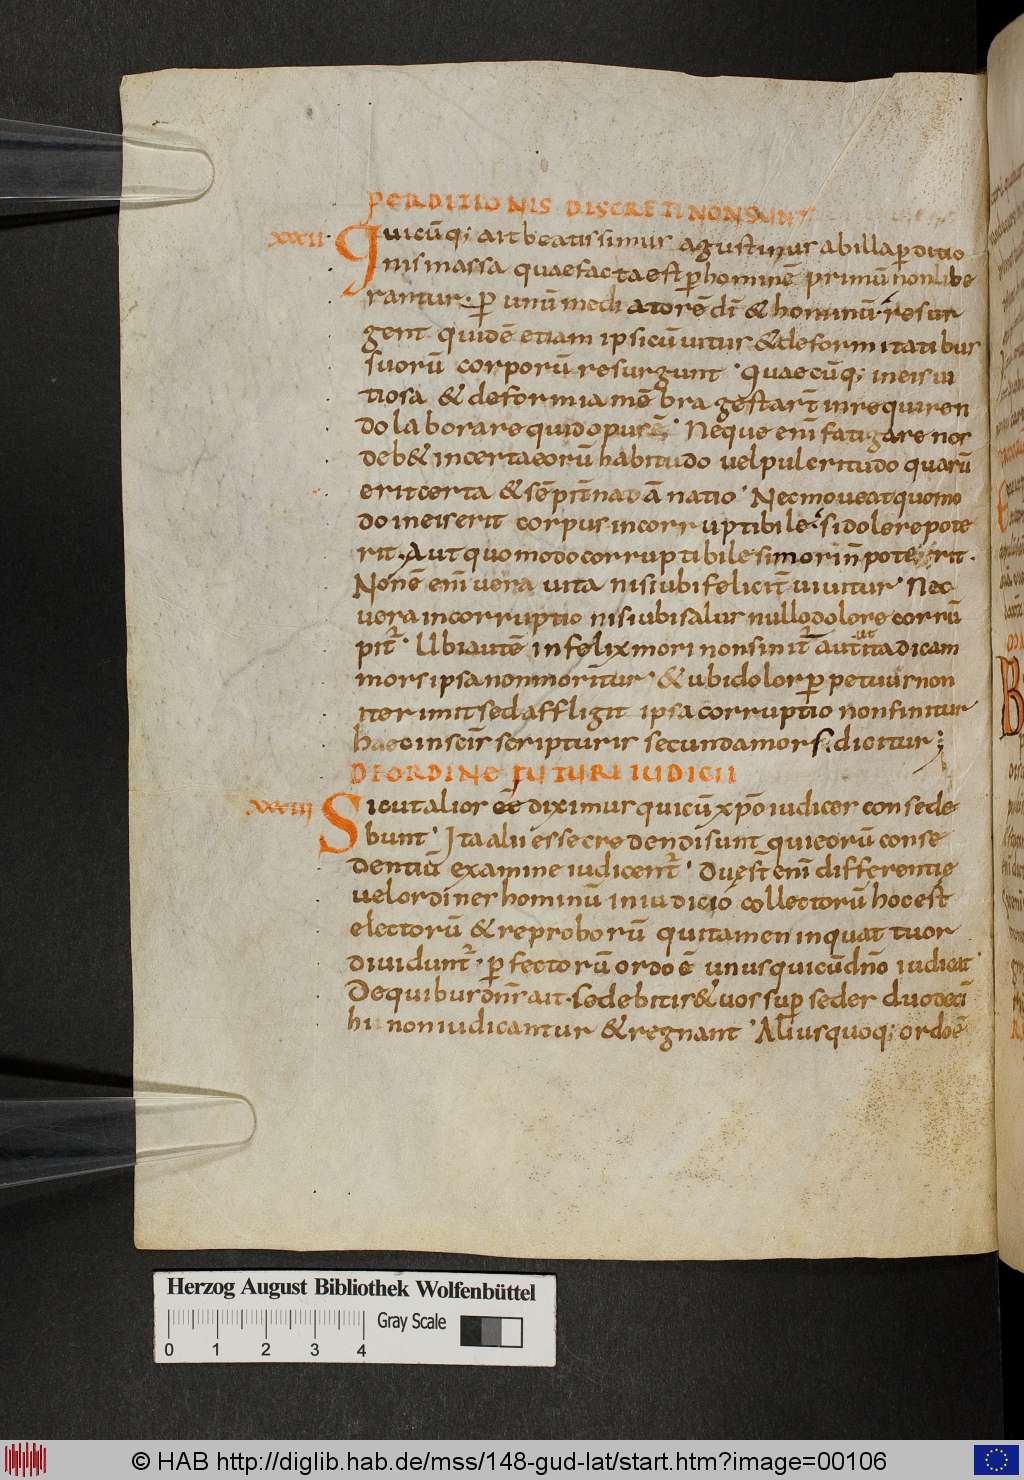 PERDITIONIS DISCRETI NON SUNT
xxxii· Quicūq; ait beatissimus agustinus ab illa pditio
nis massa quae facta est p hominē primū non libe
rantur· p unū mediatorē dī & hominū· resur
gent quidē etiam ipsi cū uitiis & deformitatibus
suorū corporū resurgunt· quaecūq; in eis ui
tiosa & deformia mēbra gestar̄t in requiren
do laborare quid opus ē· Neque enī fatigare nos
deb& incerta eorū habitudo uel pulcritudo quarū
erit certa & sēpit̄na dānatio· Nec moueat quomo
do in eis erit corpus incorruptibile· si dolere pote
rit· Aut quomodo corruptibile si mori n̄ poterit·
Non ē enī uera uita nisi ubi felicit̄ uiuitur· Nec
uera incorruptio nisi ubi salus nullo dolore corrū
pit̄· Ubi autē infelix mori non sinit̄ aut ut ita dicam
mors ipsa non moritur· & ubi dolor ppetuus non
iterimit sed affligit ipsa corruptio non finitur
haec in scis̄ scripturis secunda mors dicitur;
DE ORDINE FUTURI IUDICII
xxxiii Sicut alios eē diximus qui cū xp̄o iudices consede
bunt· Ita alii esse credendi sunt qui eorū conse
dentiū examine iudicent̄· Duę st̄ enī differentię
uel ordines hominū in iudicio collectorū hoc est
electorū & reproborū qui tamen in quattuor
diuidunt̄· pfectorū ordo ē unus qui cū dn̄o iudicat·
De quibus dn̄s ait· Sedebitis & uos sup sedes duodeci
hii non iudicantur & regnant· Alius quoq; ordo ē
Herzog August Bibliothek Wolfenbüttel
0 1 2 3 4 Gray Scale
© HAB http://diglib.hab.de/mss/148-gud-lat/start.htm?image=00106